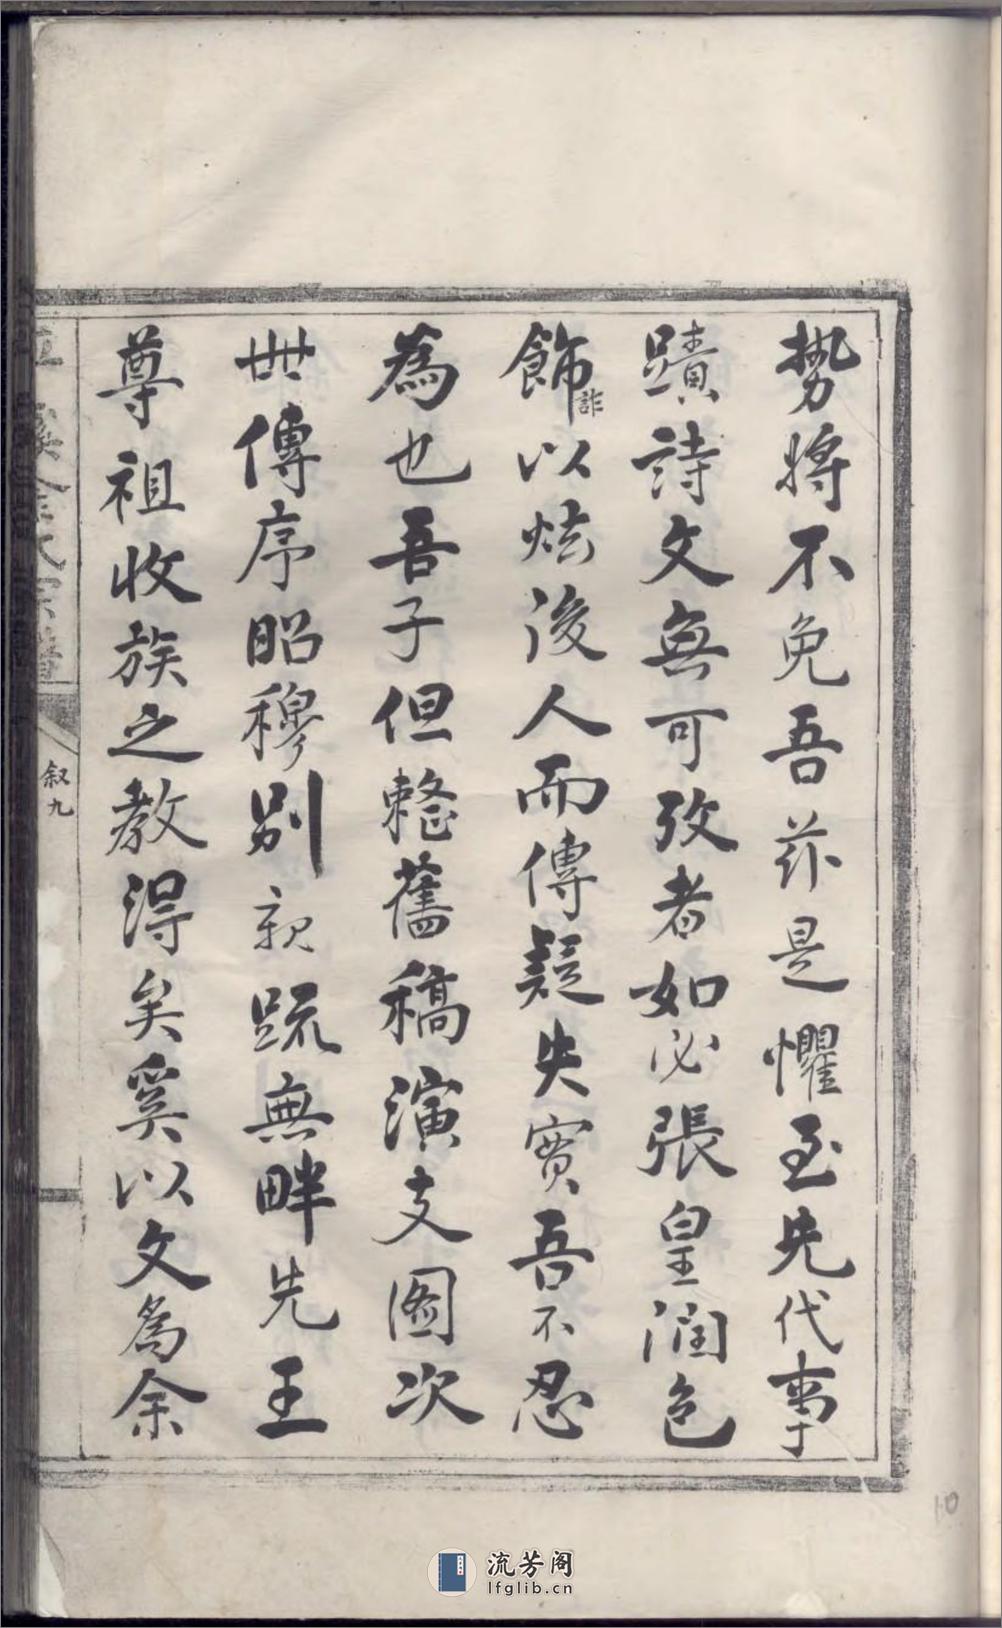 勢將不免吾茲是懼至先代事
蹟詩文無可攷者如必張皇潤色
飾詐以炫後人而傳疑失實吾不忍
為也吾子但整舊稿演支圖次
世傳序昭穆別親疏無畔先王
尊祖收族之教得矣奚以文為余
氏宗譜
叙九
10
流芳阁
lfglib.cn